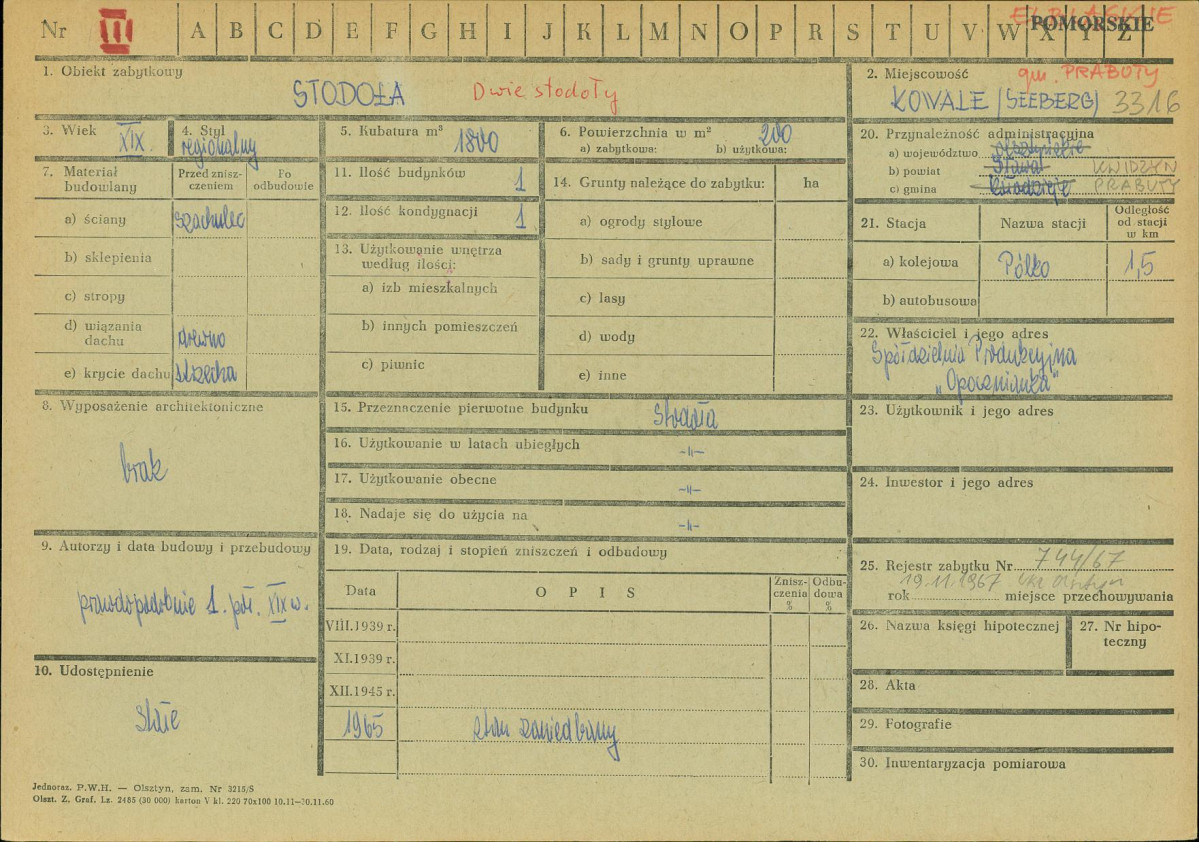 Nr III A B C D E F G H I J K L M N O P R S T U V W X Y Z
ELBLĄSKIE
POMORSKIE
1. Obiekt zabytkowy
STODOŁA Dwie stodoły
2. Miejscowość
gm. PRABUTY
KOWALE /SEEBERG/ 3316
3. Wiek XIX.
4. Styl regionalny
5. Kubatura m³ 1800
6. Powierzchnia w m² 200
a) zabytkowa: b) użytkowa:
7. Materiał budowlany
Przed zniszczeniem
Po odbudowie
a) ściany szachulec
b) sklepienia
c) stropy
d) wiązania dachu drewno
e) krycie dachu strzecha
8. Wyposażenie architektoniczne
brak
9. Autorzy i data budowy i przebudowy
prawdopodobnie 1. poł. XIX w.
10. Udostępnienie
stałe
11. Ilość budynków 1
12. Ilość kondygnacji 1
13. Użytkowanie wnętrza według ilości:
a) izb mieszkalnych
b) innych pomieszczeń
c) piwnic
14. Grunty należące do zabytku: ha
a) ogrody stylowe
b) sady i grunty uprawne
c) lasy
d) wody
e) inne
15. Przeznaczenie pierwotne budynku stodoła
16. Użytkowanie w latach ubiegłych -„-
17. Użytkowanie obecne -„-
18. Nadaje się do użycia na -„-
19. Data, rodzaj i stopień zniszczeń i odbudowy
Data OPIS Zniszczenia % Odbudowa %
VIII.1939 r.
XI.1939 r.
XII.1945 r.
1965 stan zaniedbany
20. Przynależność administracyjna
a) województwo olsztyńskie
b) powiat KWIDZYN
c) gmina PRABUTY
21. Stacja Nazwa stacji Odległość od stacji w km
a) kolejowa Pólko 1,5
b) autobusowa
22. Właściciel i jego adres
Spółdzielnia Produkcyjna
„Opocznianka"
23. Użytkownik i jego adres
24. Inwestor i jego adres
25. Rejestr zabytku Nr 744/67
19.11.1967
rok miejsce przechowywania
26. Nazwa księgi hipotecznej
27. Nr hipoteczny
28. Akta
29. Fotografie
30. Inwentaryzacja pomiarowa
Jednoraz. P.W.H. — Olsztyn, zam. Nr 3215/S
Olszt. Z. Graf. Lz. 2485 (30 000) karton V kl. 220 70x100 10.11—30.11.60